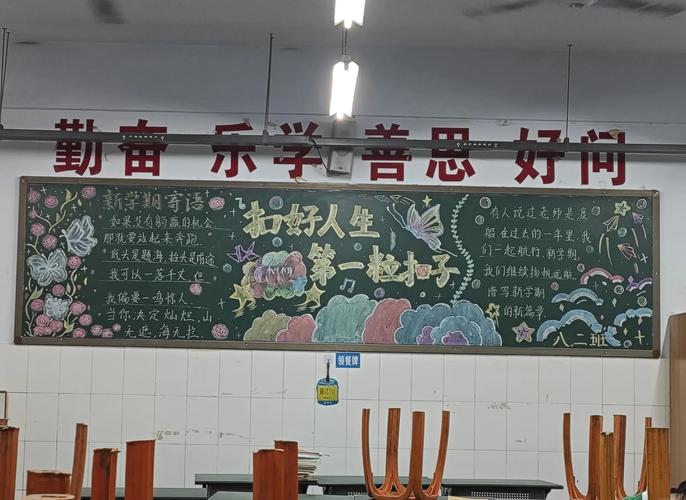 勤奋 乐学 善思 好问
新学期寄语
如果没有躺赢的机会,
那就要站起来奔跑.
低头是题海,抬头是前途
我可以一落千丈,但
我偏要一鸣惊人
当你决定灿烂,山
无遮,海无拦.
扣好人生
第一粒扣子
有人说过老师是渡
船在过去的一年里,我
们一起航行,新学期,
我们继续扬帆远航,
谱写新学期
的新篇章.
八二班
领餐牌